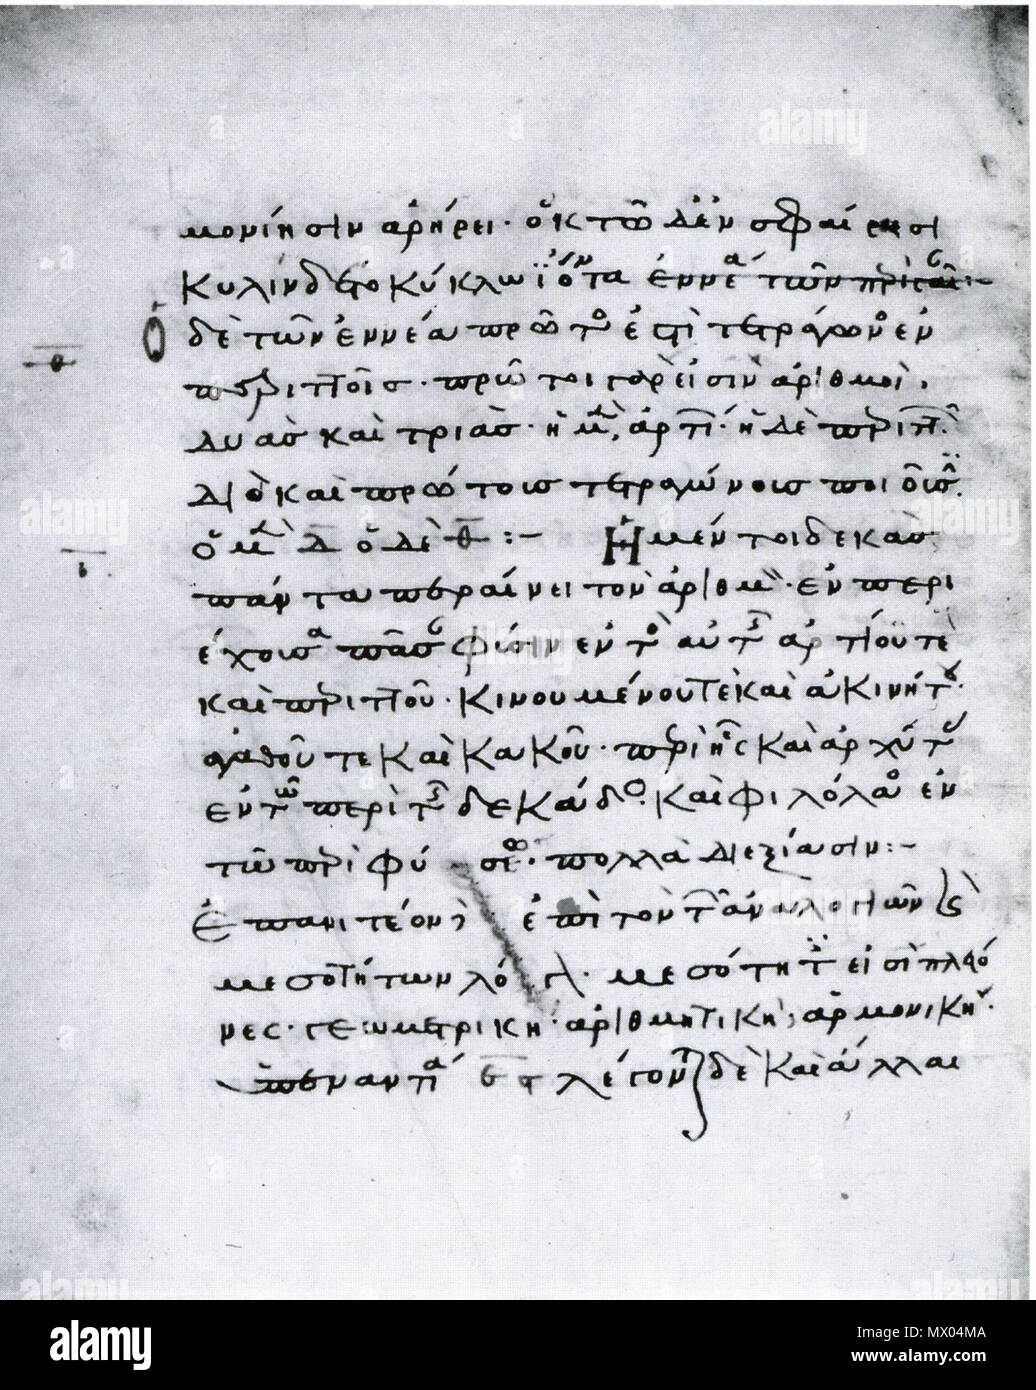 μονίησιν ἀρήρει· ὀκτὼ δ' ἐν σφαίρησι
κυλίνδετο κύκλω ἰόντα ἐννεα τῶν περὶ
ὁ δὲ τῶν ἐννέα πρῶτος ἐστὶ τετράγωνος ἐν
περιττοῖς· πρῶτοι γάρ εἰσιν ἀριθμοὶ.
δυὰς καὶ τριὰς· ἡ μὲν, ἀρτι· ἡ δὲ περιττ
διὸ καὶ πρώτοις τετραγώνοις ποιοῦσιν
ὁ μὲν δ ὁ δὲ θ :- Ἡ μέντοι δεκὰς
θ
πάντα περαίνει τὸν ἀριθμὸν· ἐν περι
ι
έχουσα πᾶσαν φύσιν ἐντὸς αὐτῆς ἀρτίου τὲ
καὶ περιττοῦ· κινουμένου τὲ καὶ ἀκινήτου·
ἀγαθοῦ τε καὶ κακοῦ· περὶ ἧς καὶ ἀρχύτας
ἐν τῶ περὶ τῆς δεκάδος· καὶ φιλόλαος ἐν
τῶ περὶ φύσεως· πολλὰ διεξίασιν :-
Ἐπανιτέον δὲ ἐπὶ τὸν τῶν ἀναλογιῶν καὶ
μεσοτήτων λόγον· μεσότητες εἰσὶ πλείο
νες· γεωμετρικὴ· ἀριθμητικὴ, ἁρμονικὴ·
ὑπεναντία ε ς λέγονται δὲ καὶ ἄλλαι
alamy
Image ID: MX04MA
www.alamy.com